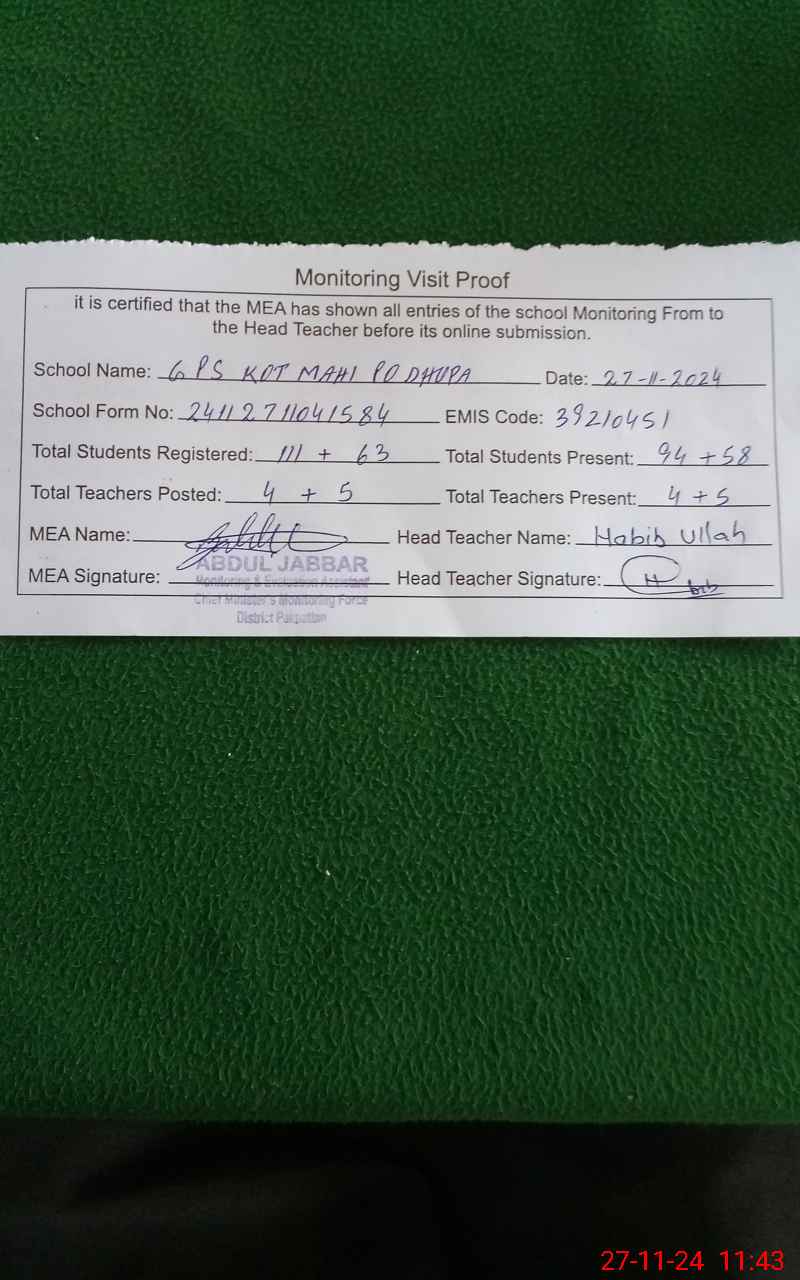 Monitoring Visit Proof
it is certified that the MEA has shown all entries of the school Monitoring From to
the Head Teacher before its online submission.
School Name: GPS KOT MAHI PO DHUPA Date: 27-11-2024
School Form No: 24112711041584 EMIS Code: 39210451
Total Students Registered: 111 + 63 Total Students Present: 94 + 58
Total Teachers Posted: 4 + 5 Total Teachers Present: 4 + 5
MEA Name: Head Teacher Name: Habib Ullah
ABDUL JABBAR
MEA Signature: Head Teacher Signature:
Monitoring & Evaluation Assistant
Chief Minister's Monitoring Force
District Pakpattan
27-11-24 11:43